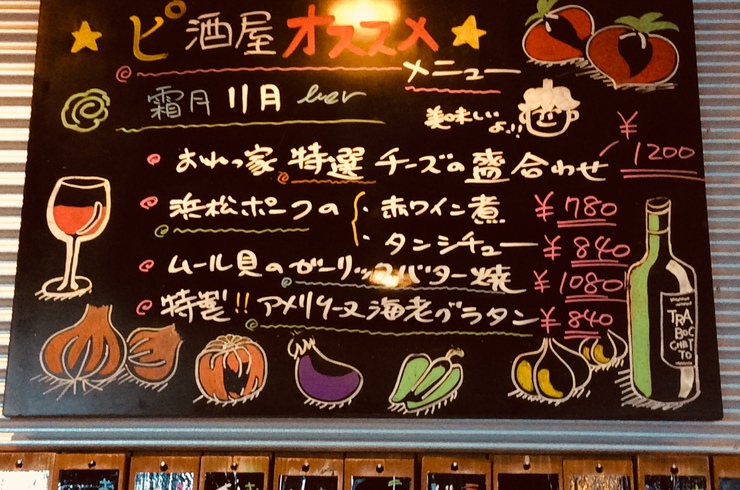 ピ酒屋オススメ
メニュー
霜月 11月 hiver
美味しい
よ!!
おれっ家 特選 チーズの盛合わせ ¥1200
浜松ポークの ・赤ワイン煮 ¥780
・タンシチュー ¥840
ムール貝のガーリックバター焼 ¥1080
特製!! アメリケーヌ海老グラタン ¥840
TRA
BOC
CHET
TO